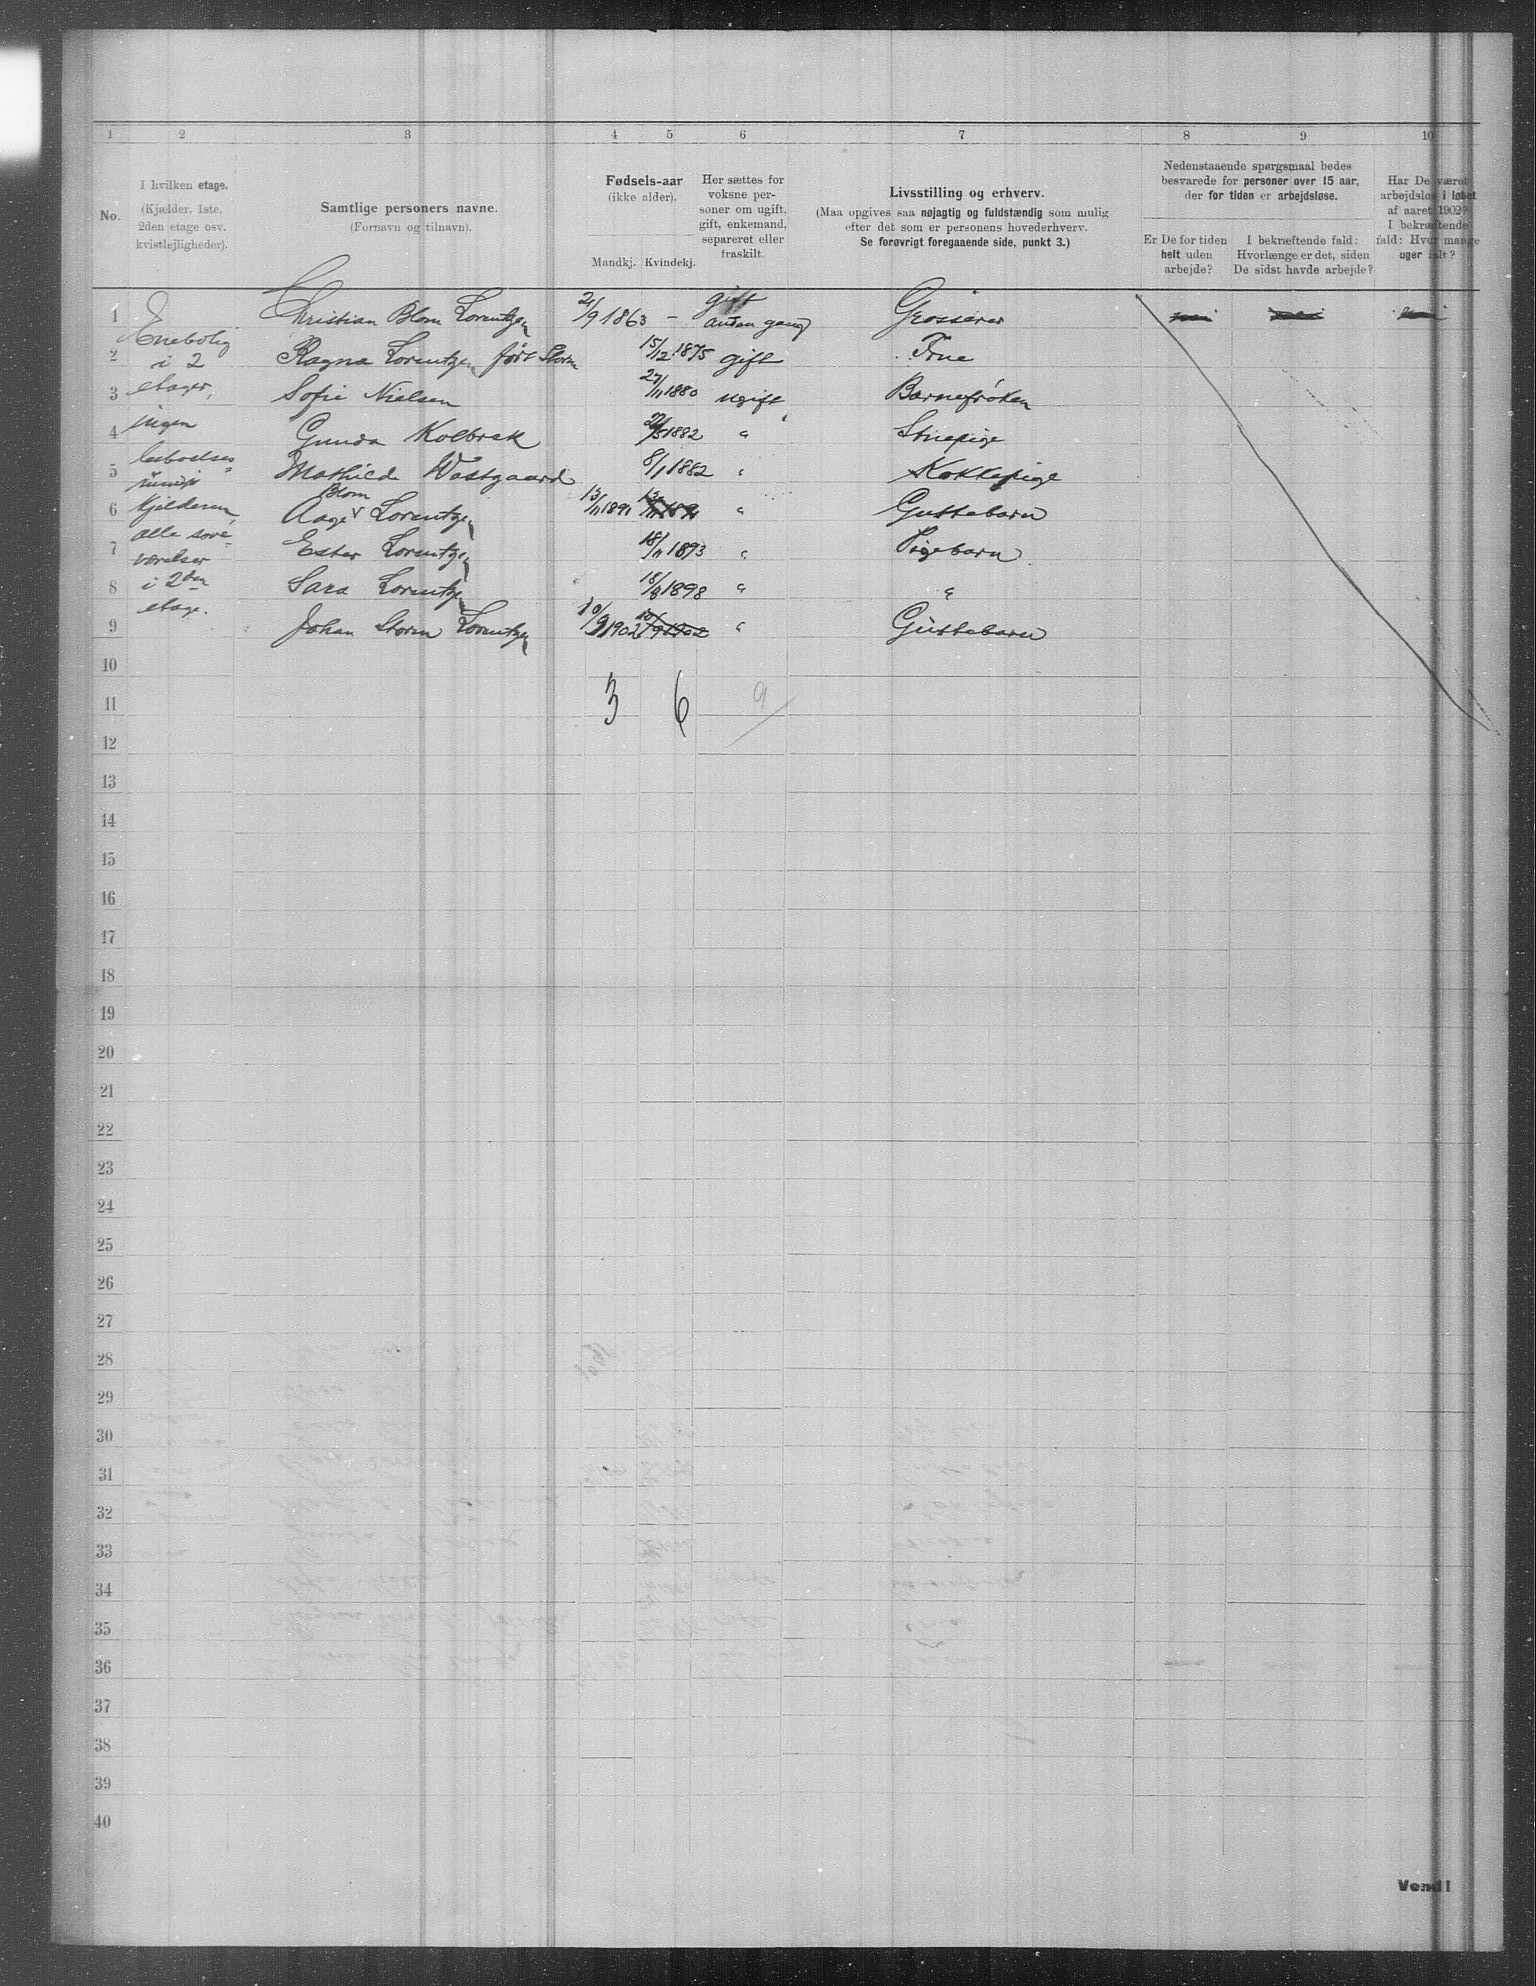 1 2 3 4 5 6 7 8 9 10
No.
I hvilken etage.
(Kjælder, 1ste.
2den etage osv.
kvistlejligheder).
Samtlige personers navne.
(Fornavn og tilnavn).
Fødsels-aar
(ikke alder).
Mandkj. Kvindekj.
Her sættes for
voksne per-
soner om ugift,
gift, enkemand,
separeret eller
fraskilt.
Livsstilling og erhverv.
(Maa opgives saa nøjagtig og fuldstændig som mulig
efter det som er personens hovederhverv.
Se forøvrigt foregaaende side, punkt 3.)
Nedenstaaende spørgsmaal bedes
besvarede for personer over 15 aar,
der for tiden er arbejdsløse.
Er De for tiden
helt uden
arbejde?
I bekræftende fald:
Hvorlænge er det, siden
De sidst havde arbejde?
Har De været
arbejdsløs i løbet
af aaret 1902?
I bekræftende
fald: Hvor mange
uger ialt?
Enebolig
i 2
etager,
ingen
beboelses-
rum i
kjelderen,
alle sove-
værelser
i 2den
etage.
1 Christian Blom Lorentzen 2/9 1863 - gift anden gang Grosserer nei nei nei
2 Ragna Lorentzen født Storm 15/12 1875 gift Frue
3 Sofie Nielsen 27/11 1880 ugift Barnefrøken
4 Gunda Kolbrek 22/5 1882 " Stuepige
5 Mathilde Wostgaard 8/1 1882 " Kokkepige
6 Aage Blom Lorentzen 13/11 1891 13/11 1891 " Guttebarn
7 Ester Lorentzen 18/11 1893 " Pigebarn
8 Sara Lorentzen 18/8 1898 " "
9 Johan Storm Lorentzen 10/9 1902 10/9 1902 " Guttebarn
10
11 3 6 9
12
13
14
15
16
17
18
19
20
21
22
23
24
25
26
27
28
29
30
31
32
33
34
35
36
37
38
39
40
Vend!